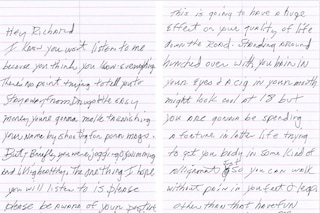 Hey Richard
I know you wont listen to me
because you think you know everything
There's no point trying to tell you to
Stay away from Drugs the easy
money you're gonna make tarnishing
your name by shooting for porn mags.
But Briefly, you were jogging swimming
and living healthy. The one thing I hope
you will listen to is please
please be aware of your posture
This is going to have a huge
Effect on your quality of life
down the Road. Standing around
hunched over with your hair in
your Eyes & A cig in your mouth
might look cool at 18 but
you are gonna be spending
a fortune in later life trying
to get your body in some kind of
alignment So you can walk
without pain in your feet & legs
other than that have fun